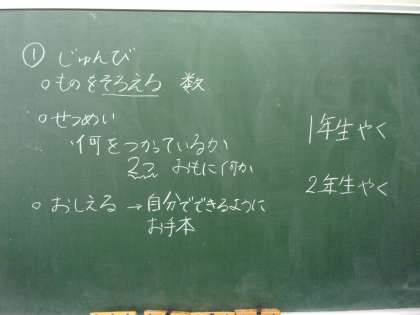 ① じゅんび
○ものをそろえる 数
○せつめい
何をつかっているか
2つ おもに何か
○おしえる→自分でできるように
お手本
1年生やく
2年生やく